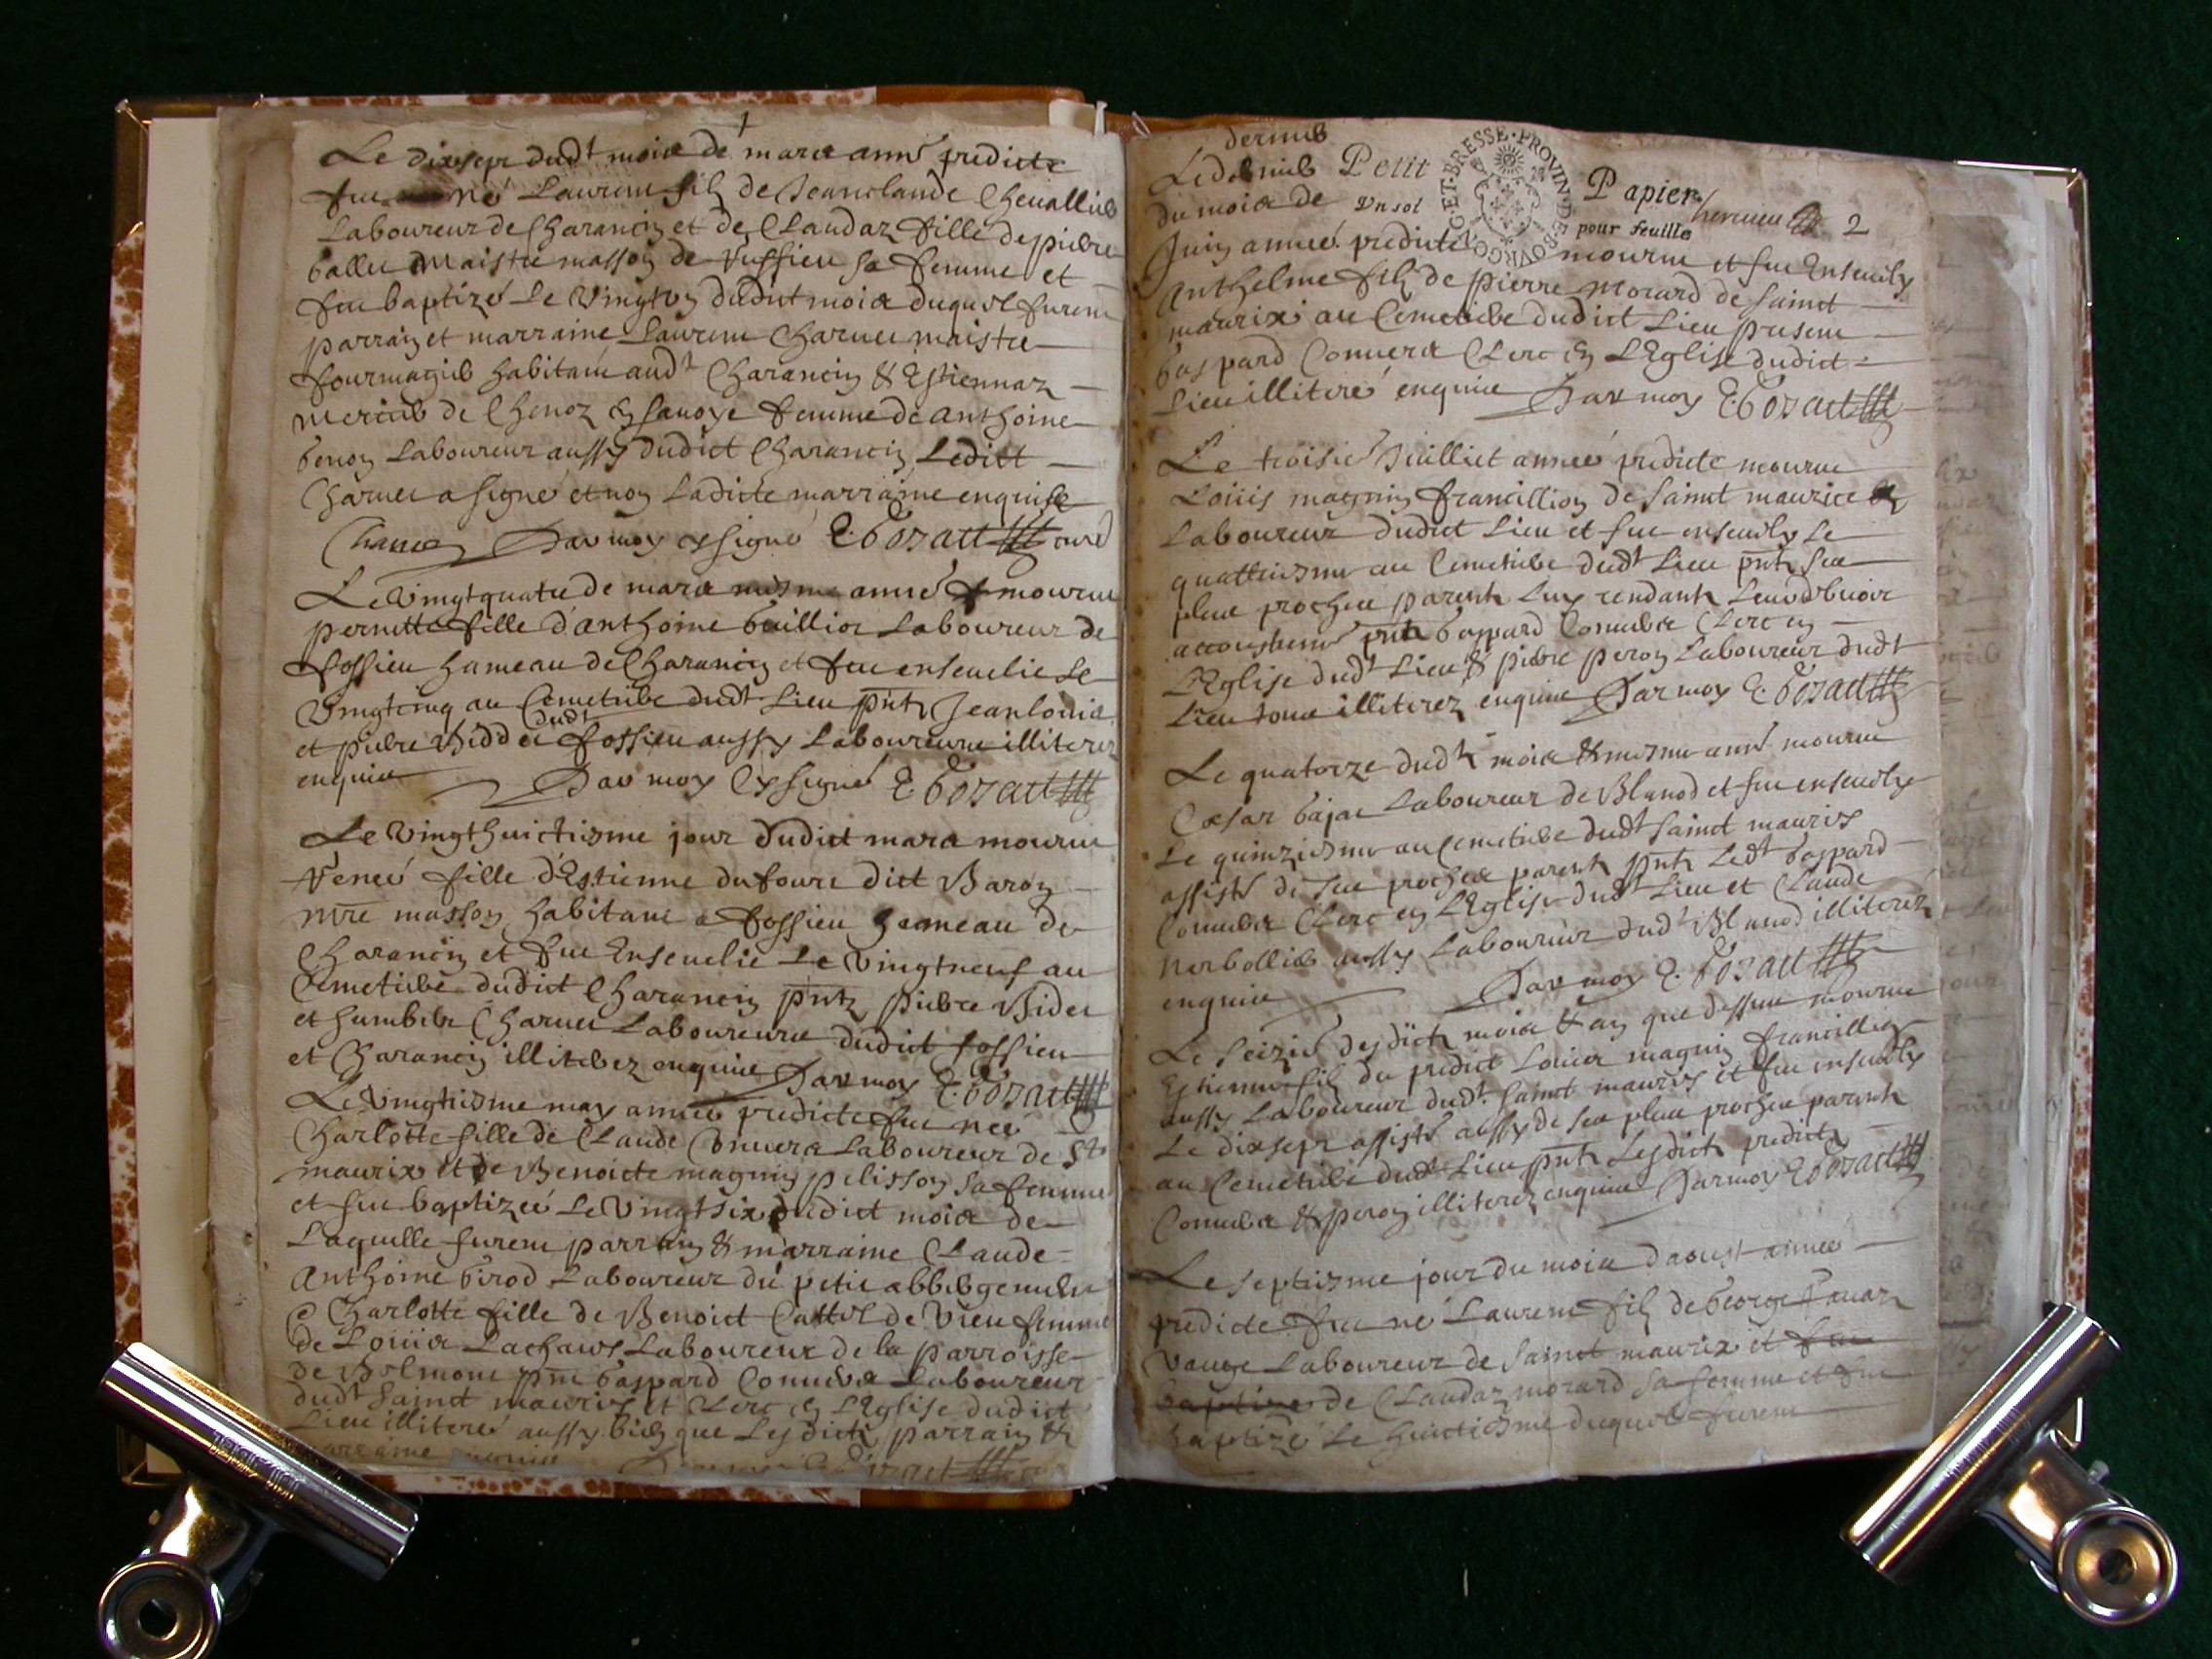 1
Le dixsept dudt mois de mars anné predicte
fut né Laurent filz de Jeanclaude Chevallier
Laboureur de Charancin et de Claudaz fille de pierre
ballet Maistre masson de Vussieu sa femme et
fut baptizé Le vingtun dudict mois duquel furent
parrain et marraine Laurent Charvet maistre
fourmagier habitant audt Charancin & Estiennaz
Mercier de Chenoz en savoye femme de anthoine
benon Laboureur aussy dudict Charancin Ledict
Charvet a signé et non Ladicte marraine enquise
Charvet Par moy Et signé E. Gozatt curé
Le vingtquatre de mars mesme anné mourut
pernette fille d'anthoine Guillot Laboureur de
fossieu hameau de Charancin et fut ensevelie Le
vingtcinq au Cemetiere dudt Lieu pntz Jeanlouis
dudt
et pierre Bidder fossieu aussy Laboureurs illiterez
enquis Par moy Et signé E. Gozatt
Le vingthuictiesme jour dudict mars mourut
fille d'Estienne dufour dict Baron
mre masson habitant a fossieu hameau de
Charancin et fut Ensevelie Le vingtneuf au
Cemetiere dudict Charancin pntz pierre Bidet
et humbert Charvet Laboureurs dudict fossieu
et Charancin illiterez enquis Par moy E. Gozatt
Le vingtiesme may année predicte fut née
Charlotte fille de Claude Convers Laboureur de St
maurix et de Benoicte magnin pelisson sa femme
et fut baptizeé Le vingtsix dudict mois de
Laquelle furent parrain & marraine Claude
Anthoine Girod Laboureur du petit abbergement
& Charlotte fille de Benoict Cattel de Vieu femme
de Louis Lachaus Laboureur de la parroisse
de Belmont pnt Gaspard Convers Laboureur
dudt Sainct mauris et Clerc en L'Eglise dudict
Lieu illiteré aussy bien que Lesdicts parrain &
marraine enquis Par moy E. Gozatt
dernier
Le dernier Petit Papier
du mois de Vn sol pour feuille 2
BOVRGOG·ET·BRESSE·PROVIN·DE
Juin année predicte mourut et fut Ensevely
Anthelme filz de pierre Morard de sainct
maurix au Cemetiere dudict Lieu present
Gaspard Convers Clerc en L'Eglise dudict
Lieu illiteré enquis Par moy E. Gozatt
Le troisie Juilliet anneé predicte mourut
Louis magnin francillion de sainct maurice
Laboureur dudict Lieu et fut ensevely Le
quattriesme au Cemetiere dudt Lieu pntz ses
plus proches parents Luy rendants Leur debvoir
accoustumé pntz Gaspard Convers Clerc en
L'Eglise dudt Lieu & pierre peron Laboureur dudt
Lieu tous illiterez enquis Par moy E. Gozatt
Le quatorze dudt mois & mesme anné mourut
Cæsar bajat Laboureur de Blanod et fut ensevely
Le quinziesme au Cemetiere dudt sainct mauris
assisté de ses proches parents pntz Ledt Gaspard
Convers Clerc en L'Eglise dudt Lieu et Claude
Nerbollier aussy Laboureur dudt Blanod illiterez
enquis Par moy E. Gozatt
Le seizie desdicts mois & an que dessus mourut
Estienne filz du predict Louis magnin francillion
aussy Laboureur dudt sainct mauris et fut ensevely
Le dixsept assisté aussy de ses plus proches parents
au Cemetiere dudt Lieu pntz Lesdicts predicts
Convers & peron illiterez enquis Par moy E. Gozatt
Le septiesme jour du mois daoust année
predicte fut né Laurent filz de George Pavaz
Laboureur de sainct maurix et fut
baptize de Claudaz morard sa femme et fut
baptizé Le huictiesme duquel furent